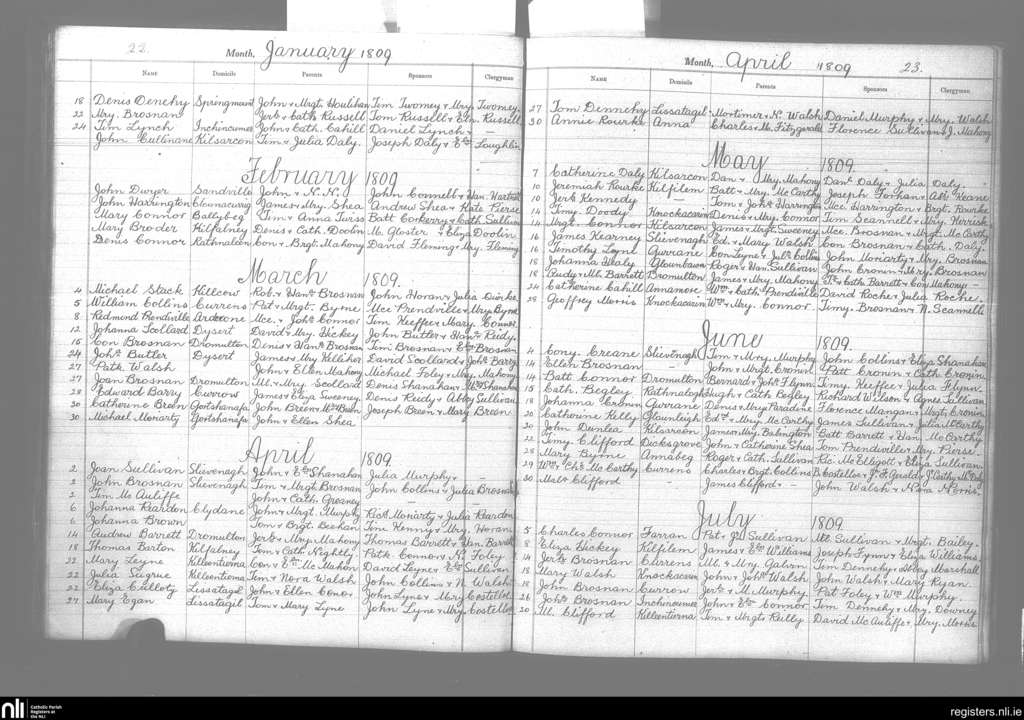 22.
Month, January 1809
Name Domicile Parents Sponsors Clergyman
18 Denis Denehy Springmount John & Mrgt. Houlihan Tim Twomey & Mry. Twomey.
22 Mry. Brosnan - Jerh. & Cath. Russell Tom Russell & Russell
24 Tim Lynch Inchincumer John & Cath. Cahill Daniel Lynch & -
John Cullinane Kilsarcon Tim. & Julia Daly. Joseph Daly & Loughlin
February 1809
John Dwyer Sandville John & N.N. John Connell & Han.
John Harrington Clounacurrig James & Mry. Shea Andrew Shea & Kate Pierse
Mary Connor Ballybeg Tim & Anna Batt Corkery & Cath. Sullivan
Mary Broder Kilfalney Denis & Cath. Doolin M. Gloster & Eliza Doolin
Denis Connor Rathnaleen Con. & Brgt. Mahony David Fleming & Mry. Fleming
March 1809.
4 Michael Stack Killcow Rob. & Brosnan John Horan & Julia Quirke
5 William Collins Currens Pat & Mrgt. Byrne Mce. Prendiville & Mry. Byrne
8 Redmond Prendiville Ardcrone Mce. & Joh. Connor Tim Keeffee & Mary Connor.
12 Johanna Scollard Dysert David & Mry. Hickey John Butler & Reidy.
16 Con Brosnan Dromulton Denis & Brosnan Tim Brosnan & Brosnan
24 Joh. Butler Dysert James & Mry. Kelliher David Scollard & Joh. Barry
27 Patk. Walsh John & Ellen Mahony Michael Foley & Mry. Mahony
27 Joan Brosnan Dromulton Ml. & Mry. Scollard Denis Shanahan & Shanahan
28 Edward Barry Currow James & Eliza Sweeney Denis Reidy & Abby Sullivan
30 Catherine Breen Gortshanafa John Breen & Breen Joseph Breen & Mary Breen
30 Michael Moriarty Gortshanafa John & Ellen Shea
April 1809.
2 Joan Sullivan Slievenagh John & Shanahan Julia Murphy & -
2 John Brosnan Slievenagh Tim & Mrgt. Brosnan John Collins & Julia Brosnan
2 Tim McAuliffe John & Cath. Greaney
6 Johanna Reardon Clydane John & Mrgt. Murphy Ricd. Moriarty & Julia Reardon
6 Johanna Brown - Tom & Brgt. Beehan Tim Kenny & Mry. Horan.
14 Andrew Barrett Dromulton Jerh. & Mry. Mahony Thomas Barrett & Han. Barrett
18 Thomas Barton Kilfalney Tom & Cath. Nightly Patk. Connor & N. Foley
22 Mary Leyne Killeentierna Con & McMahon David Leyne & Sullivan
22 Julia Sugrue Killeentierna Tom & Nora Walsh John Collins & N. Walsh
22 Eliza Culloty Lissatagil John & Ellen Conor John Lyne & Mry. Costelloe
27 Mary Egan Lissatagil Tom & Mary Lyne John Lyne & Mry. Costelloe
Month, April 1809 23.
Name Domicile Parents Sponsors Clergyman
27 Tom Dennehy Lissatagil Mortimer & N. Walsh Daniel Murphy & Mry. Walsh
30 Annie Rourke Anna Charles & M. Fitzgerald Florence Sullivan & J. Mahony
May 1809.
7 Catherine Daly Kilsarcon Dan & Mry. Mahony Danl. Daly & Julia Daly.
10 Jeremiah Rourke Kilfilem Batt & Mry. McCarthy Joseph Forhan & Abi. Keane
10 Jerh. Kennedy - Tom & Joh. Harrington Mce. Harrington & Brgt. Rourke
14 Timy. Doody Knockacarron Denis & Mry. Connor Tim Scannell & Mry. Morris
14 Mrgt. Connor Kilsarcon James & Mrgt. Sweeney Mce. Brosnan & Mrgt. McCarthy
16 James Kearney Slievenagh Ed. & Mary Walsh Con Brosnan & Cath. Daly.
16 Timothy Leyne Currane Con Leyne & Collins John Moriarty & Mry. Brosnan
18 Johanna Healy Glounbawn Roger & Han. Sullivan John Cronin & Mry. Brosnan
18 Audy & Ml. Barrett Dromulton James & Mry. Mahony & Cath. Barrett & Con Mahony -
24 Catherine Cahill Annamore Wm. & Cath. Prendiville David Roche & Julia Roche.
28 Geoffrey Morris Knockacarron Wm. & Mry. Connor Timy. Brosnan & N. Scannell
June 1809.
4 Cony. Creane Slievenagh Tom & Mry. Murphy John Collins & Eliza Shanahan
14 Ellen Brosnan - John & Mrgt. Cronin Patt Cronin & Cath. Cronin.
14 Batt Connor Dromulton Bernard & Joh. Flynn Timy. Keeffee & Julia Flynn
15 Cath. Begley Rathnalegh Hugh & Cath. Begley Richard Wilson & Agnes Sullivan
18 Johanna Cronin Currane Denis & Mry. Florence Mangan & Mrgt. Cronin
20 Catherine Kelly Glounleigh Ed. & Mry. McCarthy James Sullivan & Julia McCarthy
20 John Dunlea Kilsarcon James & Mry. Babington Batt Barrett & Han. McCarthy
22 Timy. Clifford Dicksgrove John & Catherine Shea Tom Prendiville & Mry. Pierse
28 Mary Byrne Annabeg Roger & Cath. Sullivan Ric. McElligott & Eliza Sullivan
29 Wm. & Chs. McCarthy Currens Charles & Brgt. Collins B. Costelloe &
30 Malr. Clifford - James Clifford & - John Walsh & Nora Norris.
July 1809.
5 Charles Connor Farran Pat. & Sullivan Ml. Sullivan & Mrgt. Bailey.
8 Eliza Hickey Kilfilem James & Williams Joseph Flynn & Eliza Williams
14 Jerh. Brosnan Currens Ml. & Mry. Galvin Tom Dennehy & Marshall
18 Mary Walsh Knockacarron John & Joh. Walsh John Walsh & Mary Ryan.
18 John Brosnan Currow Jer. & M. Murphy Pat Foley & Murphy.
26 Joh. Brosnan Inchincumer John & Connor Tom Dennehy & Mry. Downey
30 Ml. Clifford Killeentierna Tim & Mrgt. Reilly David McAuliffe & Mry. Morris
nli Catholic Parish Registers at the NLI
registers.nli.ie